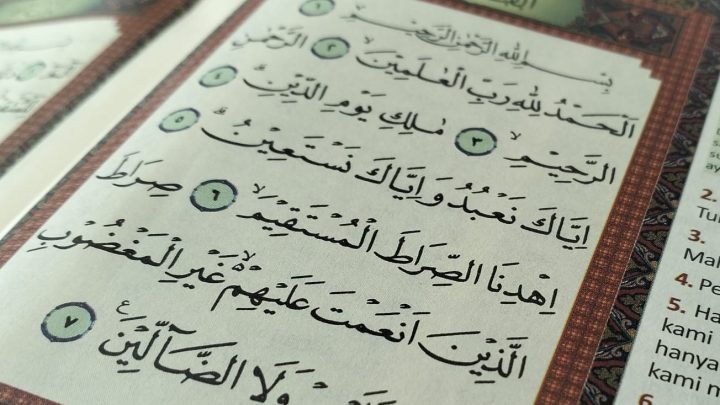 بِسْمِ اللهِ الرَّحْمٰنِ الرَّحِيْمِ ١
اَلْحَمْدُ لِلّٰهِ رَبِّ الْعٰلَمِيْنَ ٢ الرَّحْمٰنِ
الرَّحِيْمِ ٣ مٰلِكِ يَوْمِ الدِّيْنِ ٤
اِيَّاكَ نَعْبُدُ وَاِيَّاكَ نَسْتَعِيْنُ ٥
اِهْدِنَا الصِّرَاطَ الْمُسْتَقِيْمَ ٦ صِرَاطَ
الَّذِيْنَ اَنْعَمْتَ عَلَيْهِمْ غَيْرِ الْمَغْضُوْبِ
وَلَا الضَّآلِّيْنَ ٧
2.
3.
4.
5.
kami
hanya
kami
6.